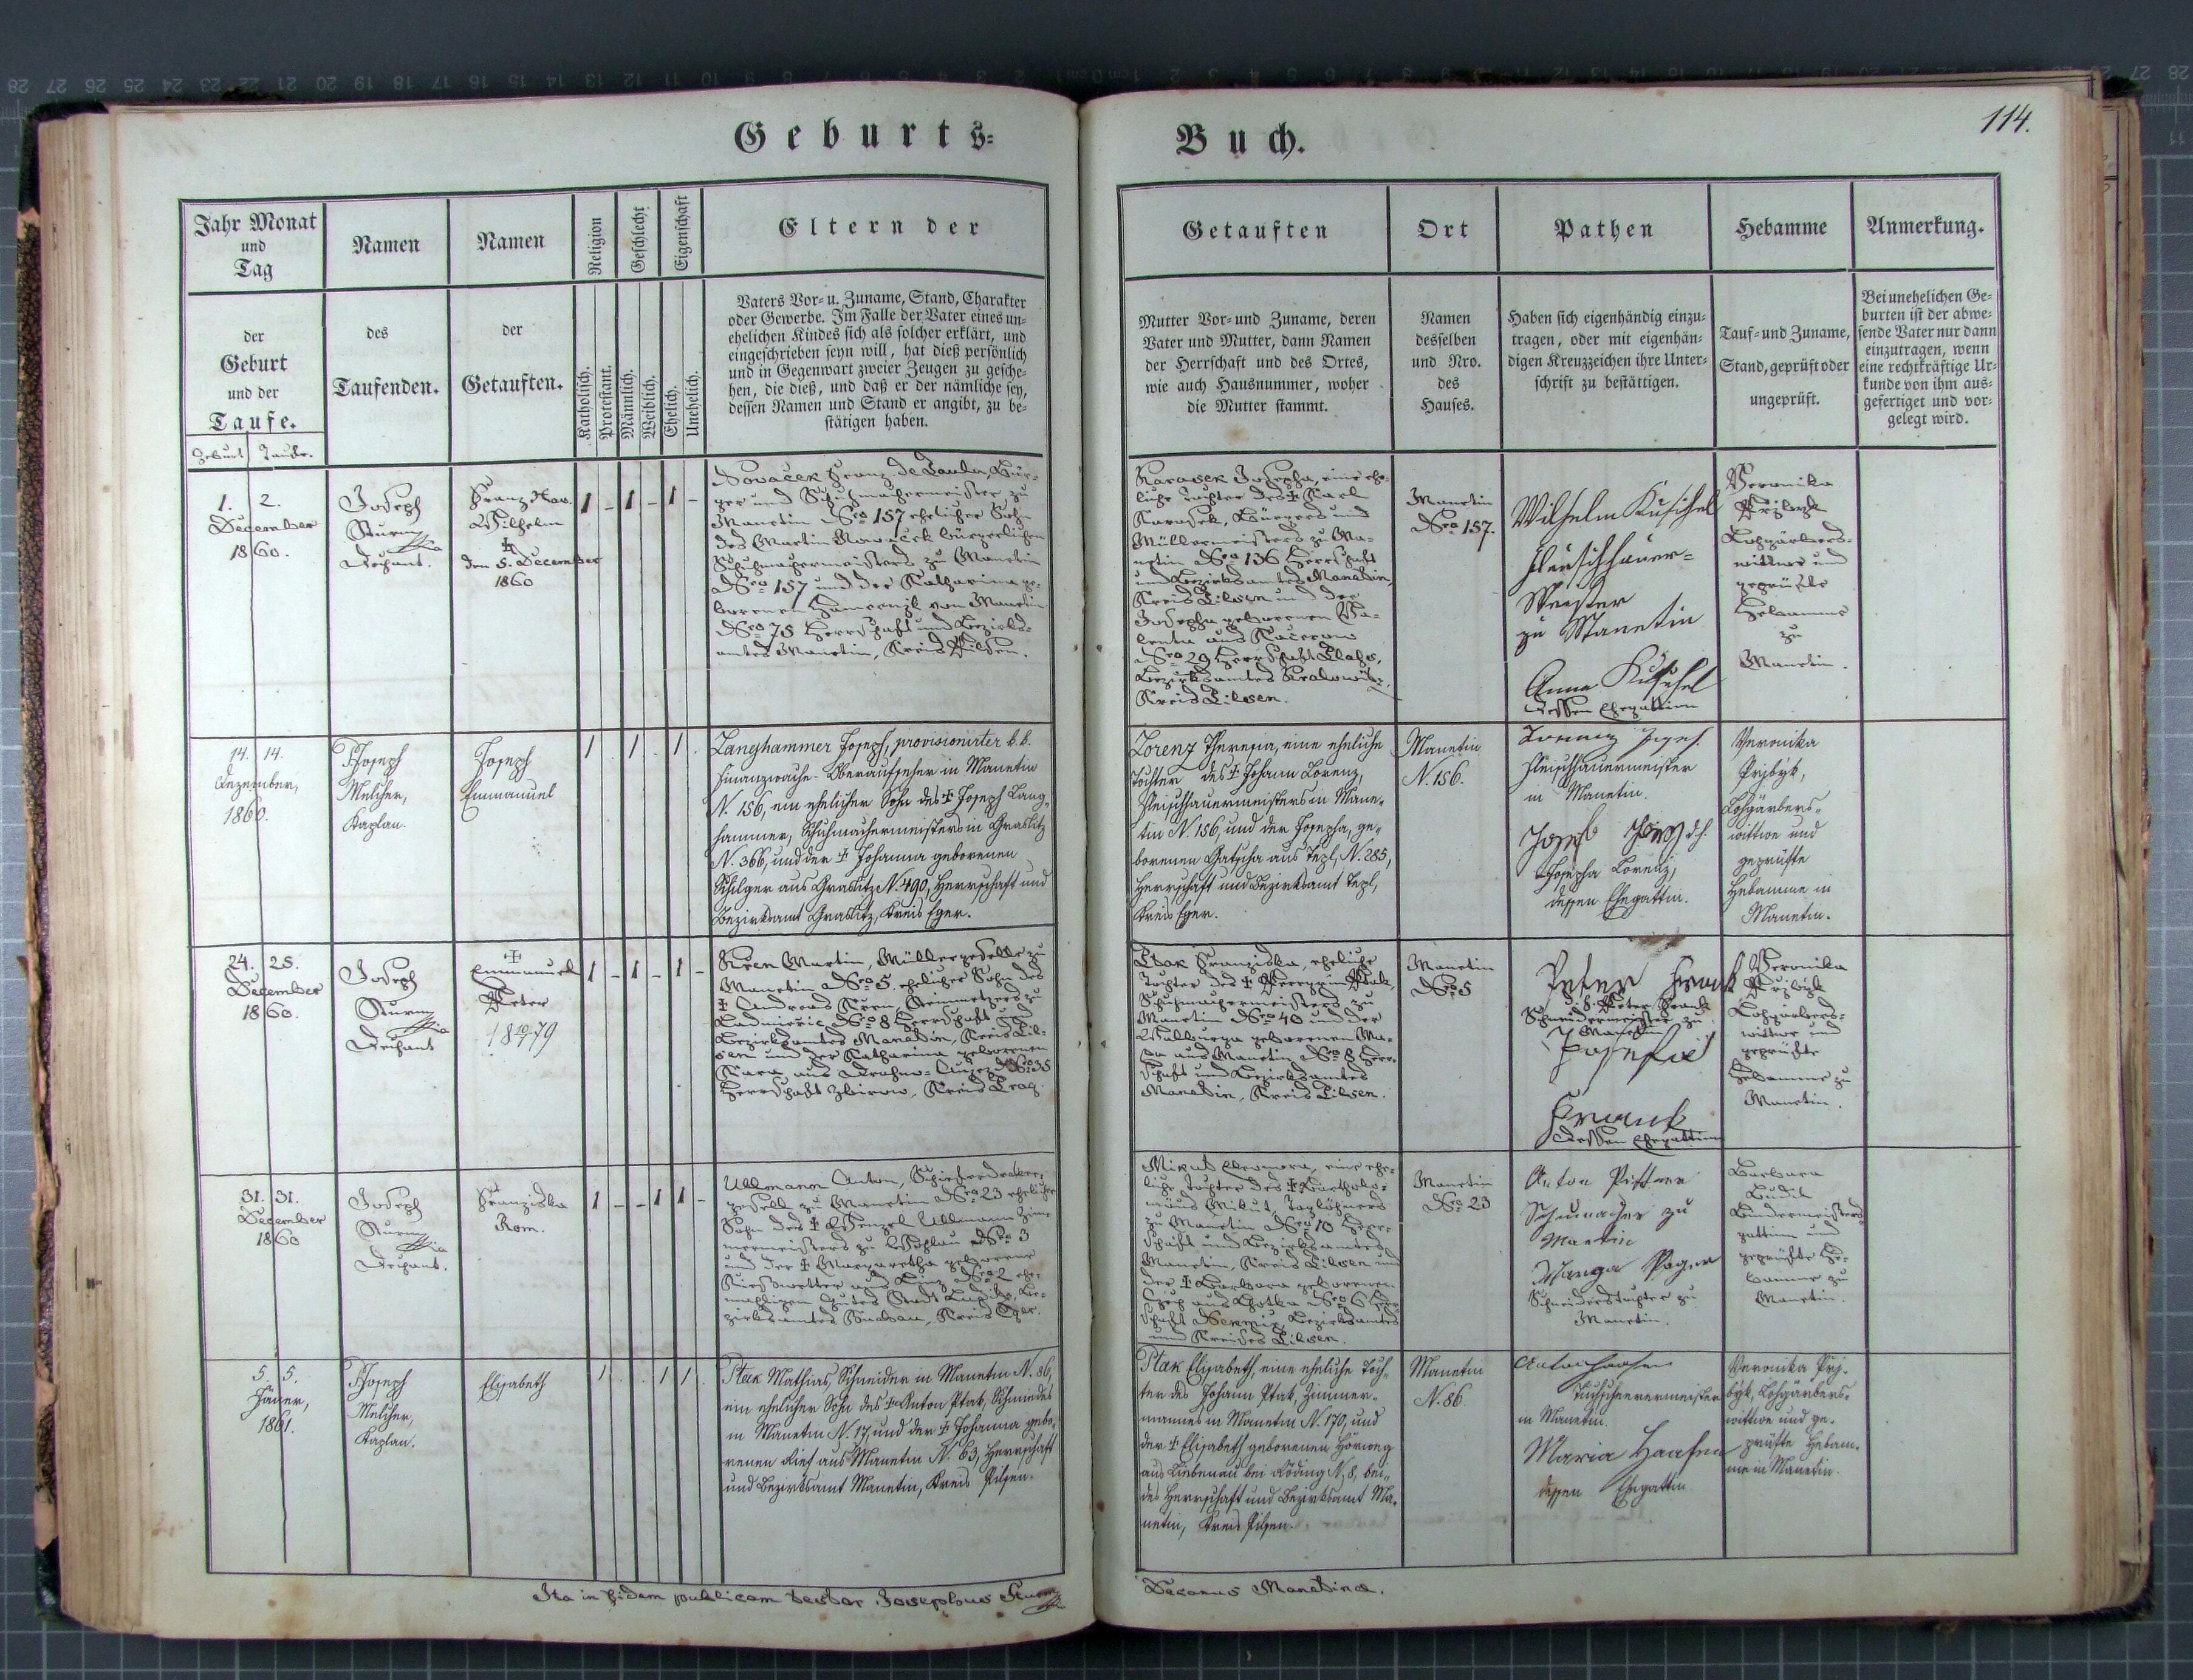 114.
Geburts-
Buch.
Jahr Monat
und
Tag
Namen
Namen
Religion
Geschlecht
Eigenschaft
Eltern der
Getauften
Ort
Pathen
Hebamme
Anmerkung.
der
Geburt
und der
Taufe.
des
Taufenden.
der
Getauften.
Katholisch.
Protestant.
Männlich.
Weiblich.
Ehelich.
Unehelich.
Vaters Vor- u. Zuname, Stand, Charakter
oder Gewerbe. Im Falle der Vater eines un-
ehelichen Kindes sich als solcher erklärt, und
eingeschrieben seyn will, hat dieß persönlich
und in Gegenwart zweier Zeugen zu gesche-
hen, die dieß, und daß er der nämliche sey,
dessen Namen und Stand er angibt, zu be-
stätigen haben.
Mutter Vor- und Zuname, deren
Vater und Mutter, dann Namen
der Herrschaft und des Ortes,
wie auch Hausnummer, woher
die Mutter stammt.
Namen
desselben
und Nro.
des
Hauses.
Haben sich eigenhändig einzu-
tragen, oder mit eigenhän-
digen Kreuzzeichen ihre Unter-
schrift zu bestättigen.
Tauf- und Zuname,
Stand, geprüft oder
ungeprüft.
Bei unehelichen Ge-
burten ist der abwe-
sende Vater nur dann
einzutragen, wenn
eine rechtkräftige Ur-
kunde von ihm aus-
gefertiget und vor-
gelegt wird.
Geburt Taufe.
1. 2.
December
1860.
Joseph
Sturm
Dechant.
Franz Xav.
Wilhelm
‡
den 5. December
1860
1 - 1 - 1 -
Novácek Franz de Paula, Bür-
ger und Schuhmachermeister zu
Manetin Nro 157 ehelicher Sohn
des Martin Novácek bürgerlichen
Schuhmachermeisters zu Manetin
Nro 157 und der Katharina ge-
borenen
von Manetin
Nro 75 Herrschaft und Bezirks-
amtes Manetin, Kreis Pilsen.
Karasek Josepha, eine ehe-
liche Tochter des ‡ Karl
Karasek, Bürgers und
Müllermeisters zu Ma-
netin Nro 136 Herrschaft
und Bezirksamtes Manetin,
Kreis Pilsen und der
Josepha geborenen Va-
lenta aus Kacerow
Nro 29 Herrschaft Plass,
Bezirksamtes Kralowitz,
Kreis Pilsen.
Manetin
Nro 157.
Wilhelm Kuschel
Fleischhauer-
Meister
zu Manetin
Anna Kuschel
dessen Ehegattin
Veronika
Přibyk
Lohgärbers-
wittwe und
geprüfte
Hebamme
zu
Manetin.
14. 14.
Dezember,
1860.
P. Joseph
Melcher,
Kaplan.
Joseph
Emmanuel
1 1 . 1 .
Langhammer Joseph, provisionirter k. k.
Finanzwache-Oberaufseher in Manetin
N. 156, ein ehelicher Sohn des ‡ Joseph Lang-
hammer, Schuhmachermeisters in Graslitz
N. 366, und der ‡ Johanna geborenen
Schilger aus Graslitz N. 490, Herrschaft und
Bezirksamt Graslitz, Kreis Eger.
Lorenz Theresia, eine eheliche
Tochter des ‡ Johann Lorenz,
Fleischhauermeisters in Mane-
tin N. 156, und der Josepha, ge-
borenen Gatscha aus Tepl, N. 285,
Herrschaft und Bezirksamt Tepl,
Kreis Eger.
Manetin
N. 156.
Lorenz Josef
Fleischhauermeister
in Manetin.
Josepha Lorenz,
dessen Ehegattin.
Veronika
Přibyk,
Lohgärbers-
wittwe und
geprüfte
Hebamme in
Manetin.
24. 25.
December
1860.
Joseph
Sturm
Dechant
‡
Emmanuel
Peter
1 - 1 - 1 -
Kren Martin, Müllergeselle zu
Manetin Nro 5, ehelicher Sohn des
‡ Andreas Kren, Steinmetzers zu
Ladmeric Nro 8 Herrschaft und
Bezirksamtes Manetin, Kreis Pil-
sen und der Katharina geborenen
Nro 35
Herrschaft Zbirow, Kreis Prag.
Ptak Franziska, eheliche
Tochter des ‡ Peregrin Ptak,
Schuhmachermeisters zu
Manetin Nro 40 und der
Walburga geborenen
aus Manetin Nro 8 Herr-
schaft und Bezirksamtes
Manetin, Kreis Pilsen.
Manetin
Nro 5
Peter Frank
d. h. Peter Frank
Schneidermeister zu
Manetin
Josefa
Frank
dessen Ehegattin
Veronika
Přibyk
Lohgärbers-
wittwe und
geprüfte
Hebamme zu
Manetin.
31. 31.
December
1860
Joseph
Sturm
Dechant.
Franziska
Rom.
1 - - 1 1 -
Ullmann Anton, Schieferdecker-
gesell zu Manetin Nro 23 ehelicher
Sohn des ‡ Wenzel Ullmann Zim-
mermeisters zu Nro 3
und der ‡ Margaretha geborene
Nro 2 ehe-
maligen Gutes Stadt
Be-
zirksamtes Buchau, Kreis Eger.
Mikut Eleonora, eine ehe-
liche Tochter des ‡ Bartholo-
mäus Mikut, Taglöhners
zu Manetin Nro 10 Herr-
schaft und Bezirksamtes
Manetin, Kreis Pilsen und
der ‡ Barbara geborenen
aus Lhotka Nro 6 Herr-
schaft Nekmir, Bezirksamtes
und Kreises Pilsen.
Manetin
Nro 23
Anton Pittner
Schumacher zu
Manetin
Schneiderstochter zu
Manetin.
Barbara
Budil
Bindermeisters-
gattin und
geprüfte He-
bamme zu
Manetin.
5. 5.
Jäner,
1861.
P. Joseph
Melcher,
Kaplan.
Elisabeth
1 . . 1 1 .
Ptak Mathias Schneider in Manetin N. 86,
ein ehelicher Sohn des ‡ Anton Ptak, Schmiedes
in Manetin N. 17, und der ‡ Johanna gebo-
renen Lief aus Manetin N. 63, Herrschaft
und Bezirksamt Manetin, Kreis Pilsen.
Ptak Elisabeth, eine eheliche Toch-
ter des Johann Ptak, Zimmer-
mannes in Manetin N. 170, und
der ‡ Elisabeth geborenen Hörweg
aus Liebenau bei Röding N. 8, bei-
des Herrschaft und Bezirksamt Ma-
netin, Kreis Pilsen.
Manetin
N. 86.
Anton Haasen
Tuchscherermeister
in Manetin.
Maria Haasen
dessen Ehegattin
Veronika Při-
byk, Lohgärbers-
wittwe und ge-
prüfte Hebam-
me in Manetin.
Ita in fidem publicam testor Josephus Sturm
Decanus Manetinæ.